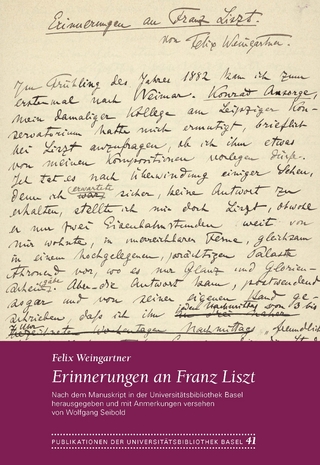 Erinnerungen an Franz Liszt.
von Felix Weingartner.
Im Frühling des Jahres 1882 kam ich zum
erstenmal nach Weimar. Konrad Ansorge,
mein damaliger Kollege am Leipziger Kon-
servatorium hatte mich ermutigt, brieflich
bei Liszt anzufragen, ob ich ihm etwas
von meinen Kompositionen vorlegen dürfe.
Ich tat es nach Überwindung einiger Scheu,
denn ich erwartete sicher, keine Antwort zu
erhalten, stellte ich mir doch Liszt, obwohl
er nur zwei Eisenbahnstunden weit von
mir wohnte, in unerreichbarer Ferne, gleichsam
in einem hochgelegenen, prächtigen Palaste
thronend vor, wo es nur Glanz und Glorien-
gäbe. Aber die Antwort kam, postwendend
sogar und von seiner eigenen Hand ge-
schrieben, dass ich ihm jeden Nachmittag von 3 bis
Nachmittag, freundlich
Felix Weingartner
Erinnerungen an Franz Liszt
Nach dem Manuskript in der Universitätsbibliothek Basel
herausgegeben und mit Anmerkungen versehen
von Wolfgang Seibold
PUBLIKATIONEN DER UNIVERSITÄTSBIBLIOTHEK BASEL 41